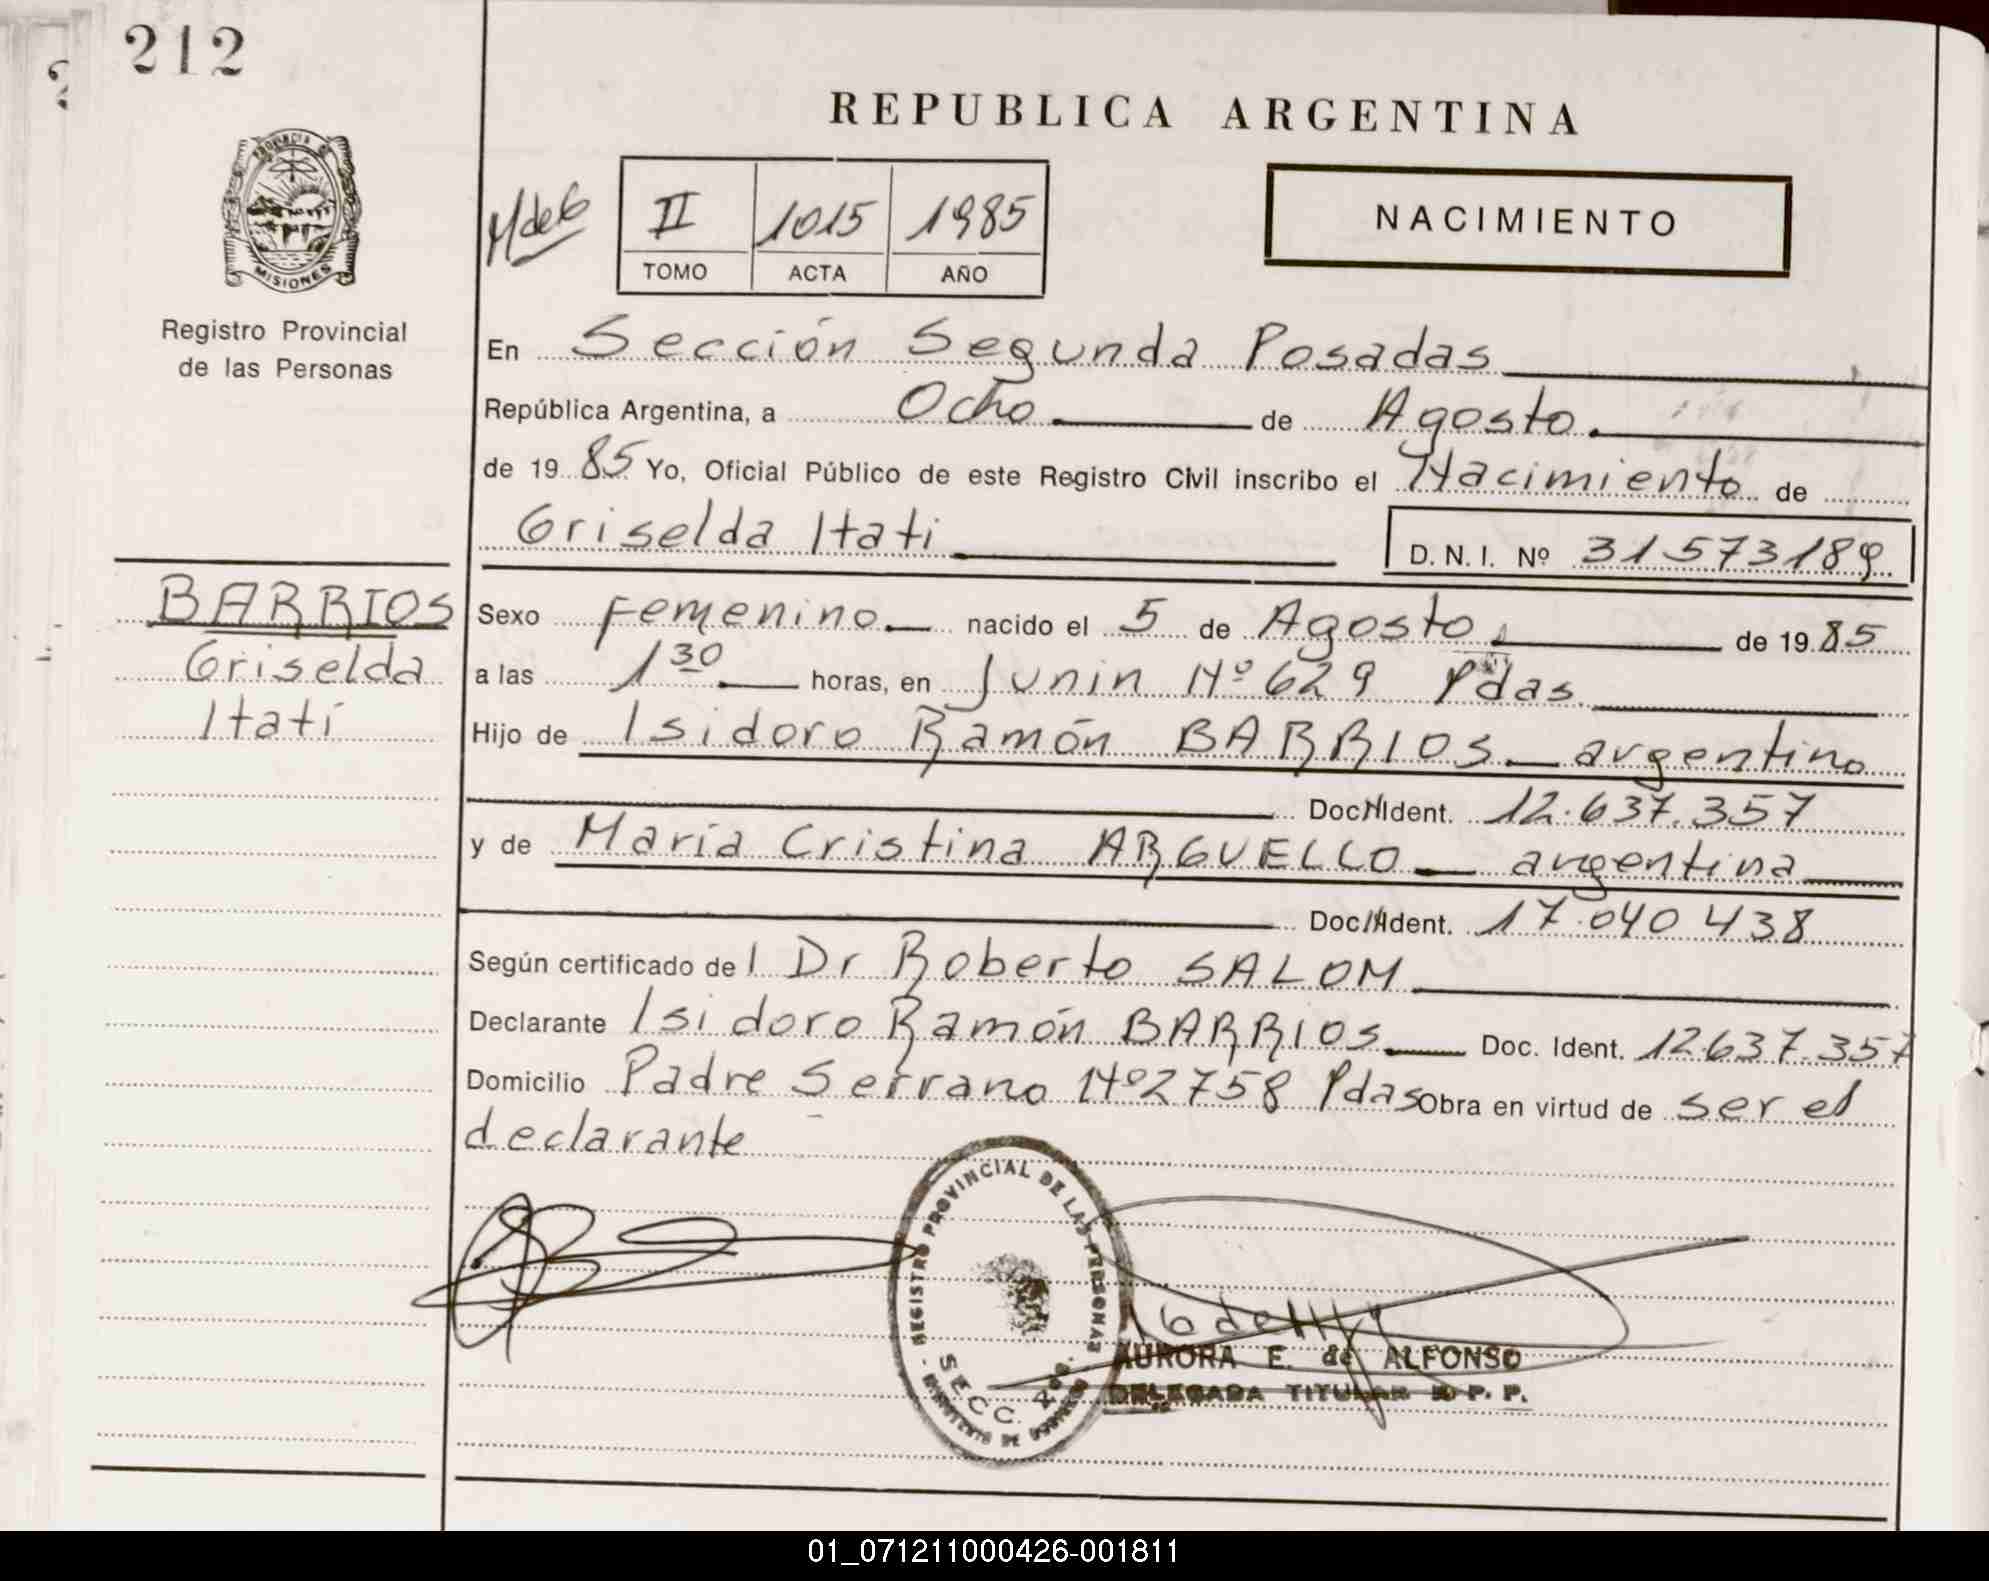 212
REPUBLICA ARGENTINA
PROVINCIA DE
MISIONES
Registro Provincial
de las Personas
II 1015 1985
TOMO ACTA AÑO
NACIMIENTO
En Sección Segunda Posadas
República Argentina, a Ocho de Agosto.
de 1985 Yo, Oficial Público de este Registro Civil inscribo el Nacimiento de
Griselda Itati
D. N. I. Nº 31573189
BARRIOS
Griselda
Itatí
Sexo Femenino nacido el 5 de Agosto de 1985
a las 1 30 horas, en Junin Nº 629 Pdas.
Hijo de Isidoro Ramón BARRIOS argentino
Doc. Ident. 12.637.357
y de María Cristina ARGUELLO argentina
Doc. Ident. 17.040 438
Según certificado del Dr Roberto SALOM
Declarante Isidoro Ramón BARRIOS Doc. Ident. 12.637.357
Domicilio Padre Serrano Nº 2758 Pdas Obra en virtud de ser el
declarante
REGISTRO PROVINCIAL DE LAS PERSONAS
SECC.
AURORA E. de ALFONSO
DELEGADA TITULAR R. P. P.
01_071211000426-001811